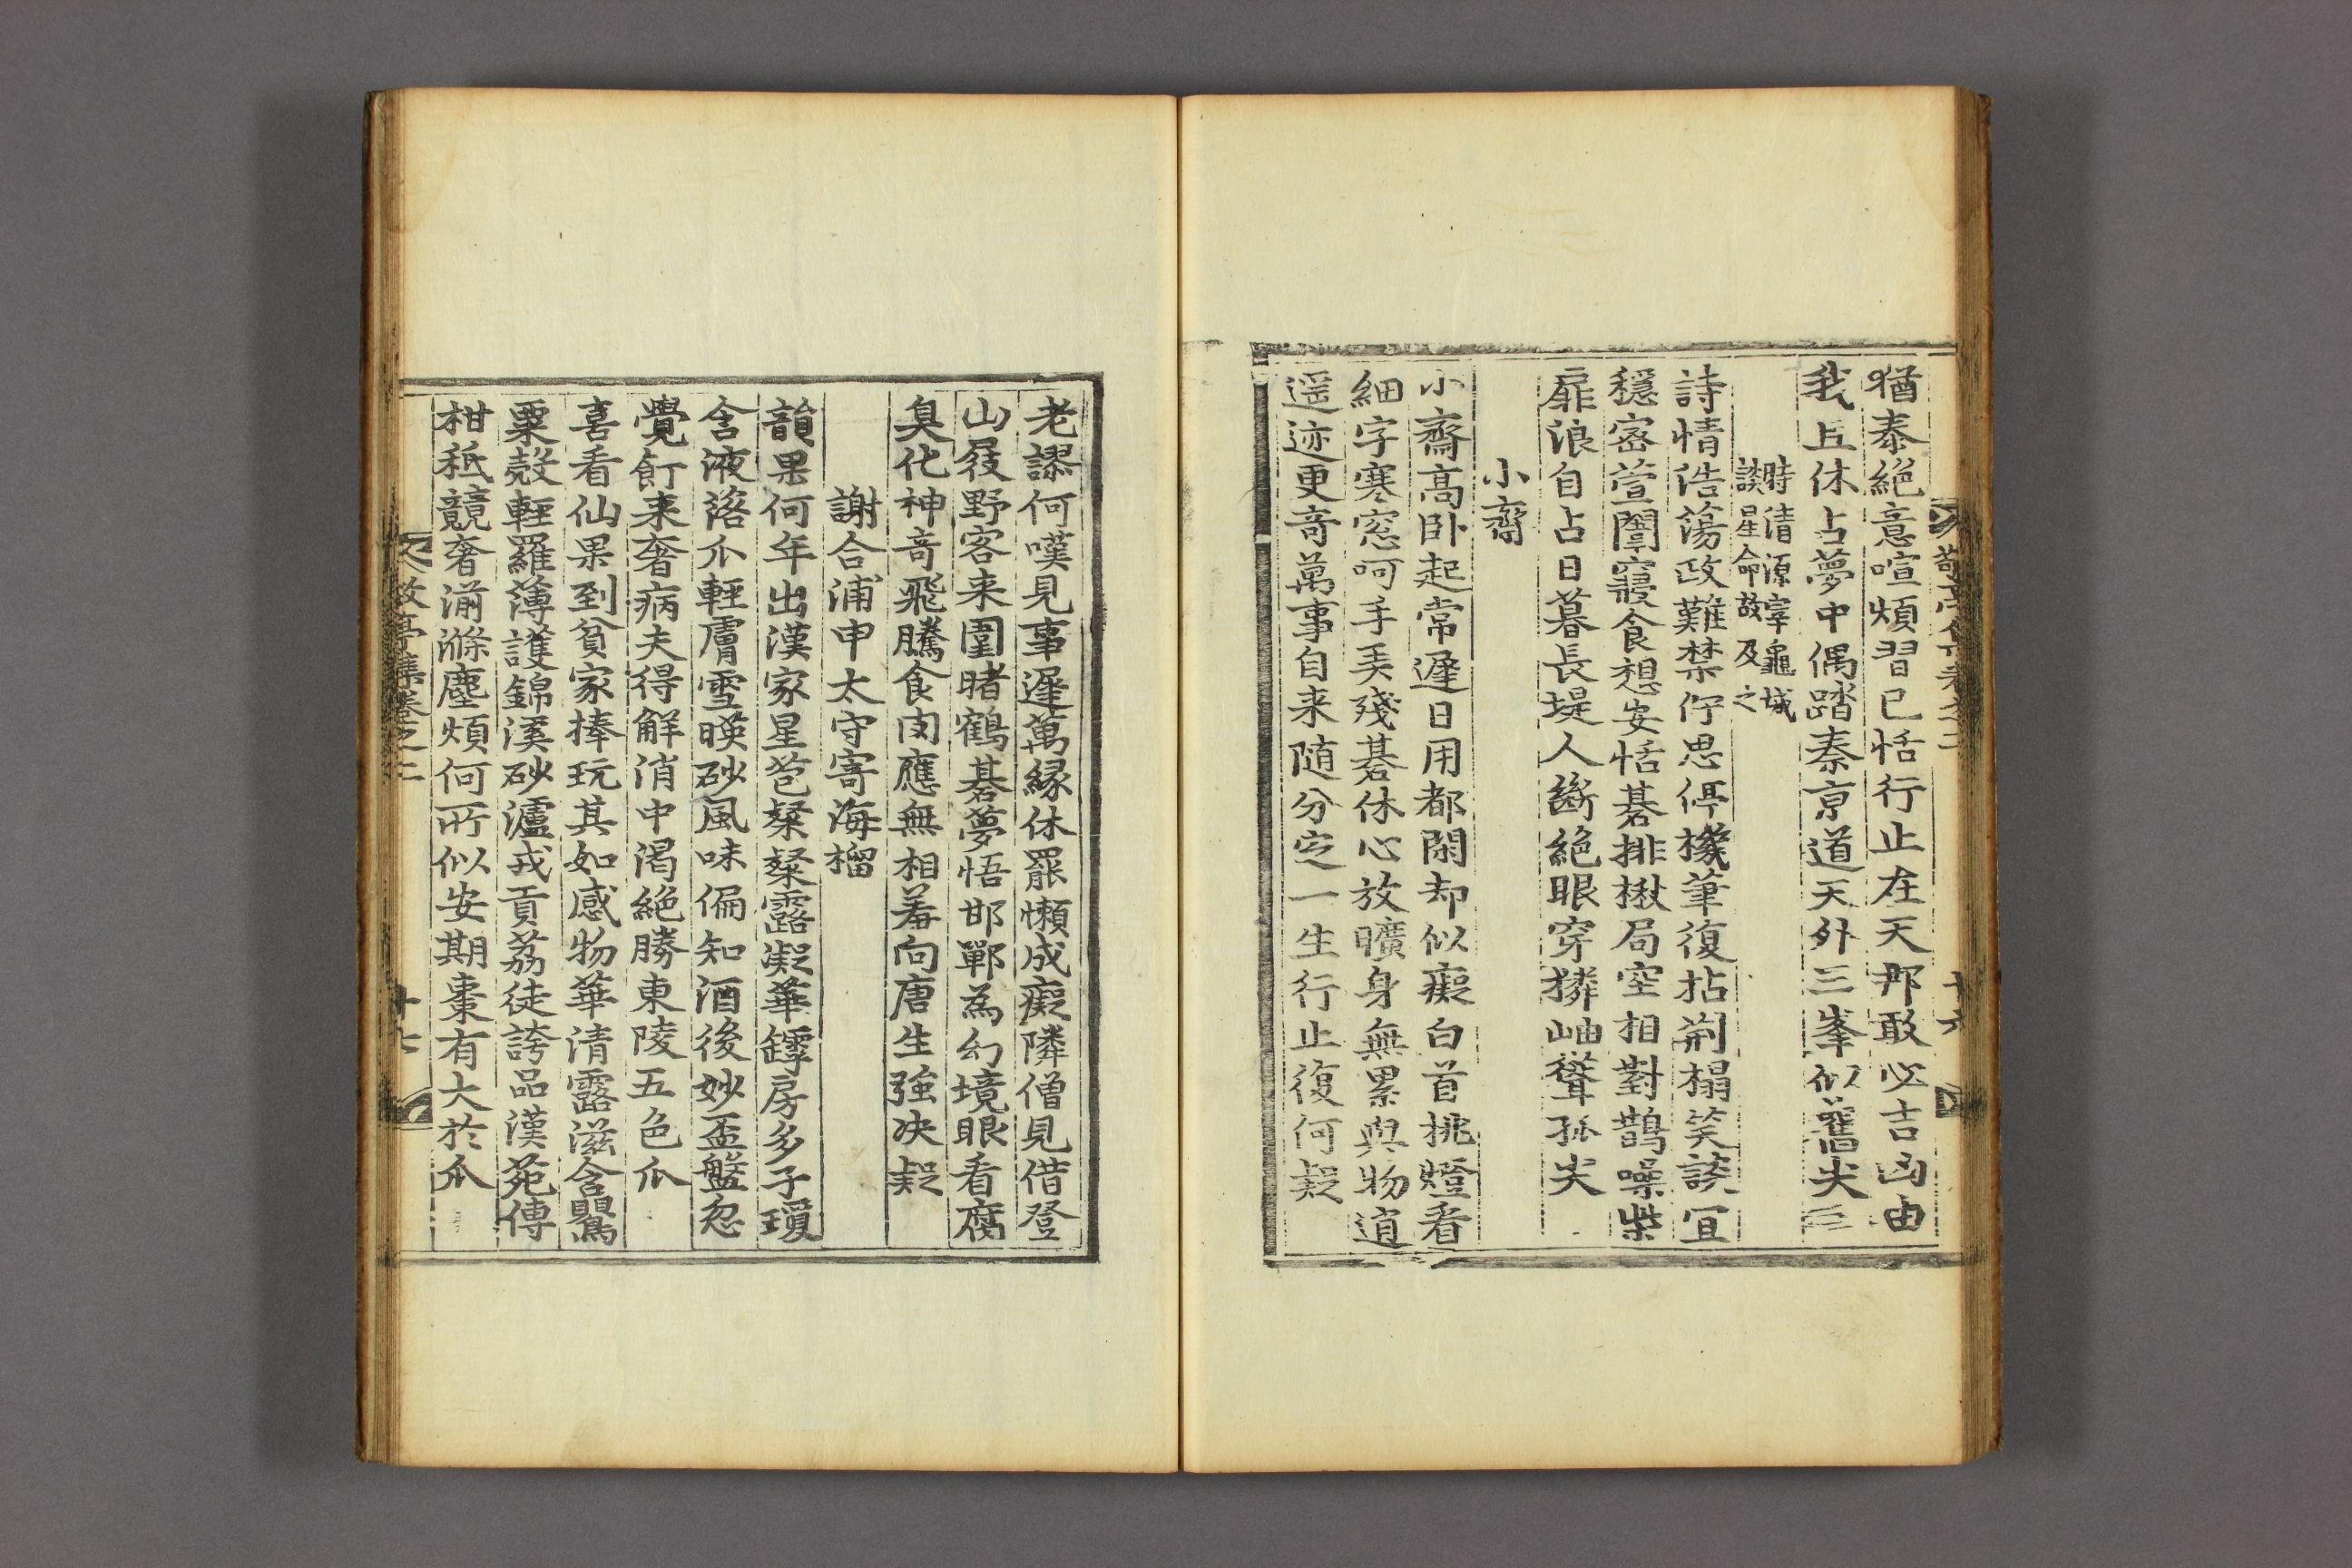 猶泰絶意喧煩習已恬行止在天那敢必吉凶由
我上休占夢中偶踏秦京道天外三峯似舊尖三
時清源宰龜城
談星命故及之
詩情浩蕩政難禁佇思停機筆復拈荊榻笑談宜
穩密萱闈寢食想安恬碁排楸局空相對鵲噪柴
扉浪自占日暮長堤人斷絶眼穿獜岫聳孤尖
小齋
小齋高卧起常遲日用都閑却似癡白首挑燈看
細字寒窓呵手美殘碁休心放曠身無累與物逍
遥迹更奇萬事自来随分定一生行止復何疑
敬亭集卷之二
十六
老謬何嘆見事遲萬縁休罷懶成癡隣僧見借登
山屐野客来圍睹鶴碁夢悟邯鄲為幻境眼看腐
臭化神奇飛騰食肉應無相羞向唐生強决疑
謝合浦申太守寄海榴
韻果何年出漢家星苞粲粲露凝華罅房多子瓊
含液落爪輕膚雪暎砂風味偏知酒後妙盃盤忽
覺飣来奢病夫得解消中渴絶勝東陵五色瓜
喜看仙果到貧家捧玩其如感物華清露滋含鸎
粟殼輕羅薄護錦溪砂瀘戎貢荔徒誇品漢苑傳
柑秖競奢湔滌塵煩何所似安期棗有大於瓜
敬亭集卷之二
十七